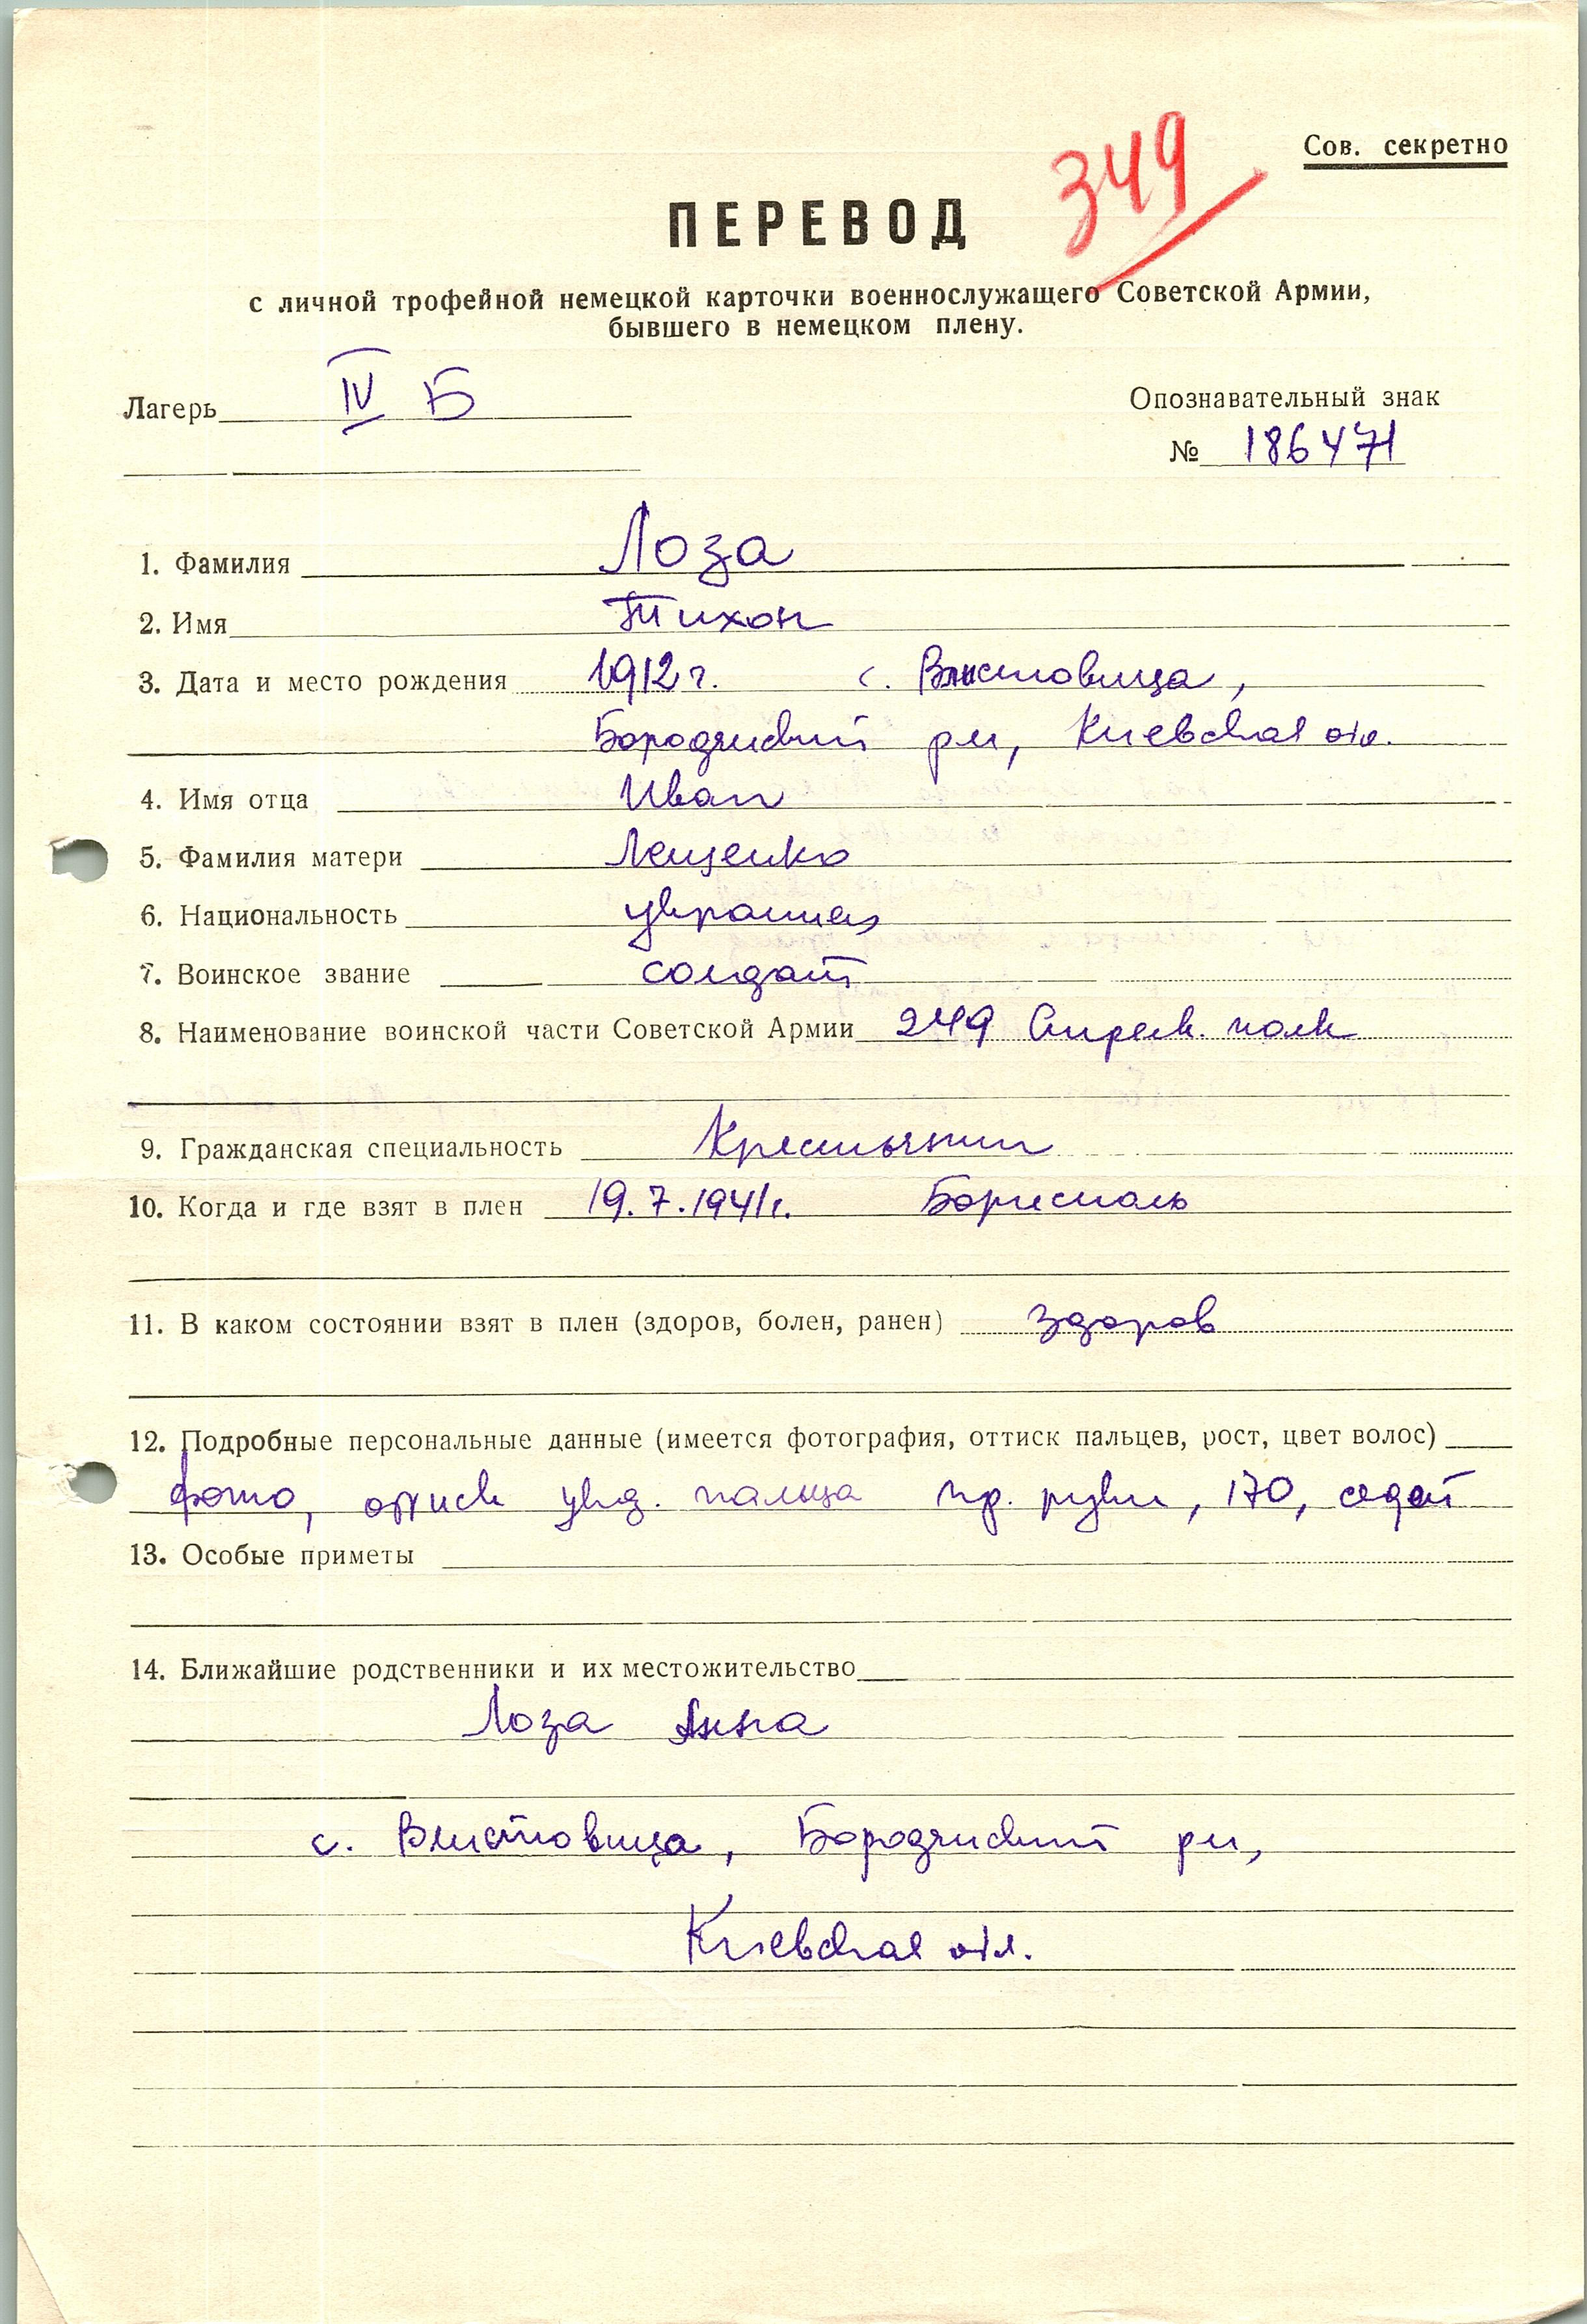 349
Сов. секретно
ПЕРЕВОД
с личной трофейной немецкой карточки военнослужащего Советской Армии,
бывшего в немецком плену.
Лагерь IV Б
Опознавательный знак
№ 186471
1. Фамилия Лоза
2. Имя Тихон
3. Дата и место рождения 1912 г. с.
Бородянский рн, Киевская обл.
4. Имя отца Иван
5. Фамилия матери Лещенко
6. Национальность украинец
7. Воинское звание солдат
8. Наименование воинской части Советской Армии 249 Стрелк. полк
9. Гражданская специальность Крестьянин
10. Когда и где взят в плен 19.7.1941г. Борисполь
11. В каком состоянии взят в плен (здоров, болен, ранен) здоров
12. Подробные персональные данные (имеется фотография, оттиск пальцев, рост, цвет волос)
фото, оттиск укд. пальца пр. руки, 170, седой
13. Особые приметы
14. Ближайшие родственники и их местожительство
Лоза Анна
с. Бородянский рн,
Киевская обл.